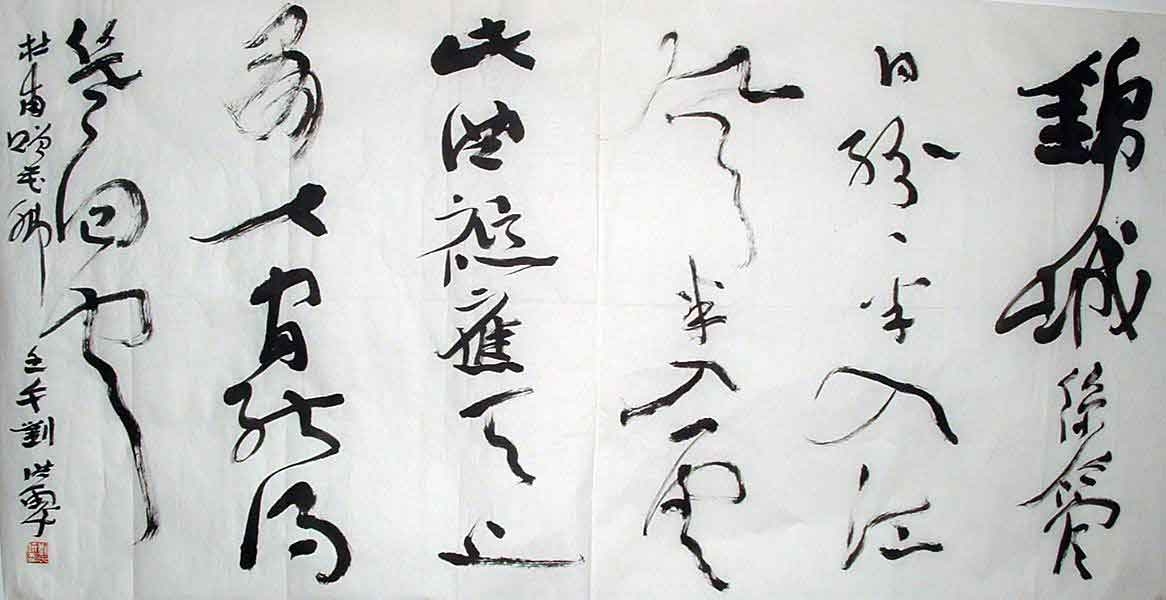 錦城絲管
日紛〻半入江
風半入雲
此曲衹應天上
有人間能得
幾回聞
杜甫贈花卿
壬午劉洪